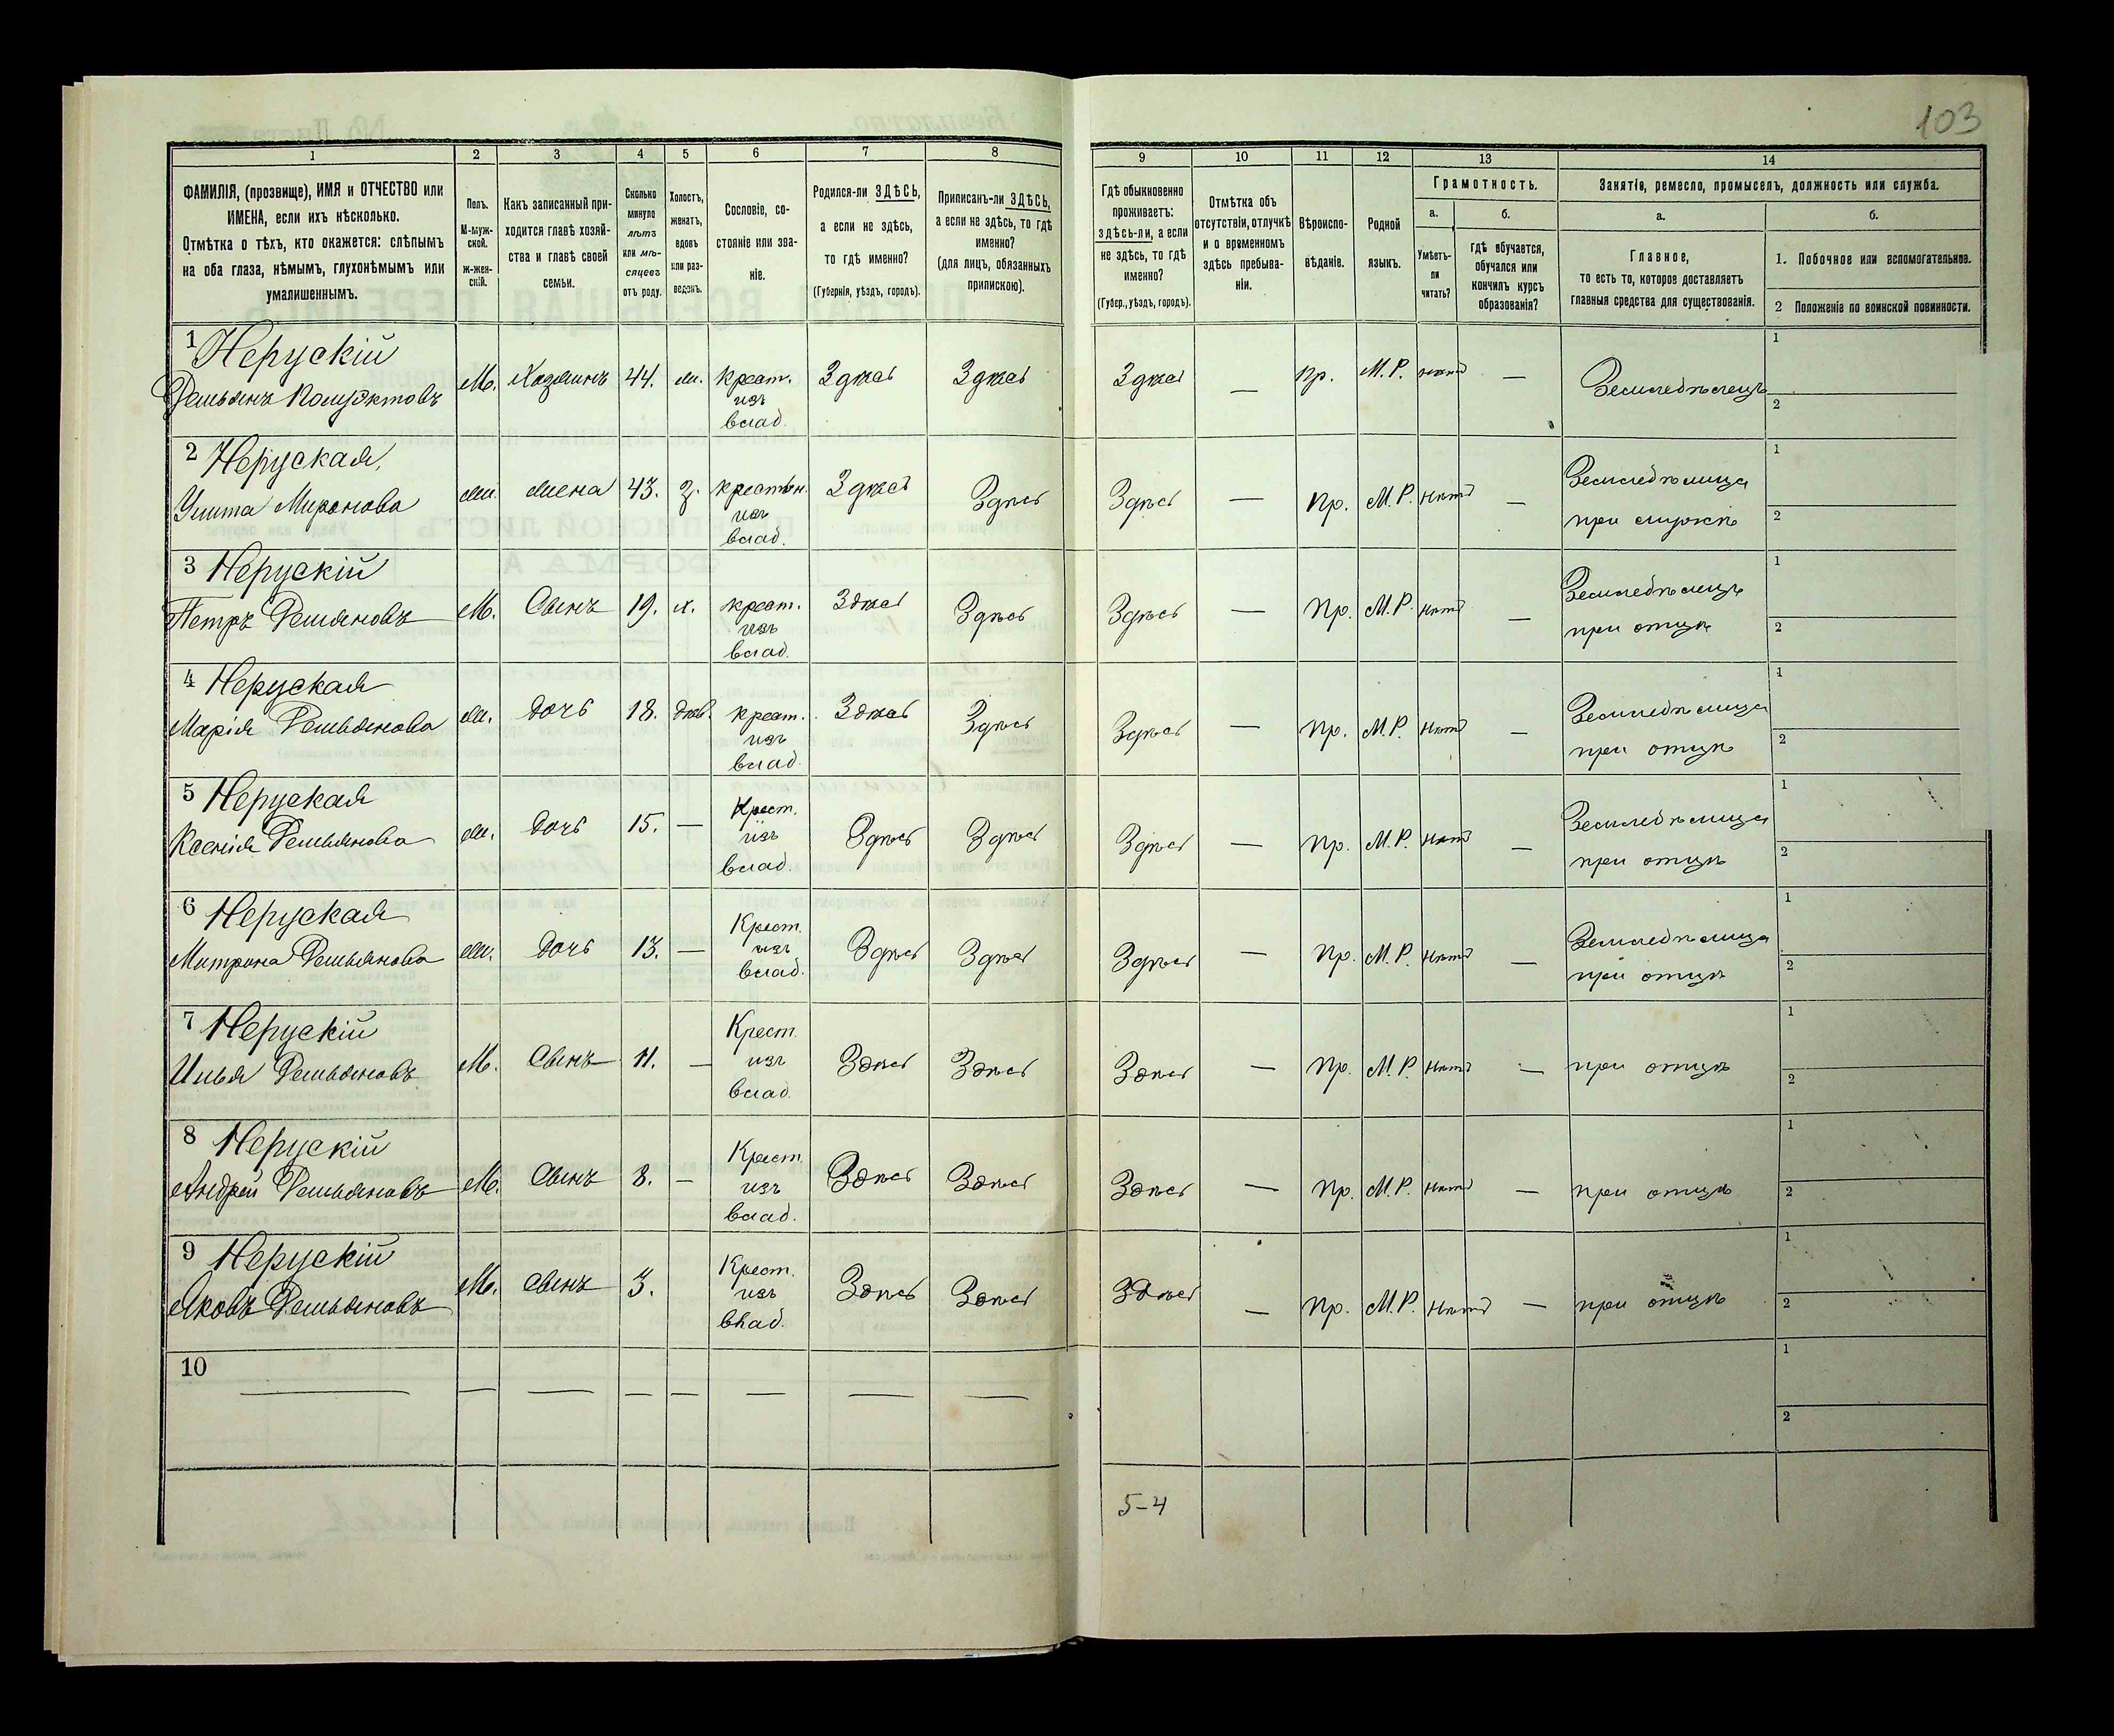 103
1 2 3 4 5 6 7 8 9 10 11 12 13 14
ФАМИЛІЯ, (прозвище), ИМЯ и ОТЧЕСТВО или
ИМЕНА, если ихъ нѣсколько.
Отмѣтка о тѣхъ, кто окажется: слѣпымъ
на оба глаза, нѣмымъ, глухонѣмымъ или
умалишеннымъ.
Полъ.
М-муж-
ской.
ж-жен-
скій.
Какъ записанный при-
ходится главѣ хозяй-
ства и главѣ своей
семьи.
Сколько
минуло
лѣтъ
или мѣ-
сяцевъ
отъ роду.
Холостъ,
женатъ,
вдовъ
или раз-
веденъ.
Сословіе, со-
стояніе или зва-
ніе.
Родился-ли ЗДѢСЬ,
а если не здѣсь,
то гдѣ именно?
(Губернія, уѣздъ, городъ).
Приписанъ-ли ЗДѢСЬ,
а если не здѣсь, то гдѣ
именно?
(для лицъ, обязанныхъ
припискою).
Гдѣ обыкновенно
проживаетъ:
здѣсь-ли, а если
не здѣсь, то гдѣ
именно?
(Губер., уѣздъ, городъ).
Отмѣтка объ
отсутствіи, отлучкѣ
и о временномъ
здѣсь пребыва-
ніи.
Вѣроиспо-
вѣданіе.
Родной
языкъ.
Грамотность.
а.
Умѣетъ-
ли
читать?
б.
гдѣ обучается,
обучался или
кончилъ курсъ
образованія?
Занятіе, ремесло, промыселъ, должность или служба.
а.
Главное,
то есть то, которое доставляетъ
главныя средства для существованія.
б.
1. Побочное или вспомогательное.
2 Положеніе по воинской повинности.
1 Нерускій
Демьянъ М. Хозяинъ 44. ж. Крест. Здѣсь Здѣсь Здѣсь — Пр. М.Р. нѣтъ — Земледѣлецъ
изъ
влад.
1
2
2 Неруская,
Улита Миронова ж. жена 43. з. крестьян. Здѣсь Здѣсь Здѣсь — Пр. М.Р. нѣтъ — Земледѣлица
изъ при мужѣ
влад.
1
2
3 Нерускій
Петръ Демяновъ М. Сынъ 19. х. крест. Здѣсь Здѣсь Здѣсь — Пр. М.Р. нѣтъ — Земледѣлецъ
изъ при отцѣ
влад.
1
2
4 Неруская
Марія Демьянова ж. дочь 18. дѣв. крест. Здѣсь Здѣсь Здѣсь — Пр. М.Р. нѣтъ — Земледѣлица
изъ при отцѣ
влад.
1
2
5 Неруская
Ксенія Демьянова ж. дочь 15. — Крест. Здѣсь Здѣсь Здѣсь — Пр. М.Р. нѣтъ — Земледѣлица
изъ при отцѣ
влад.
1
2
6 Неруская
Митрина Демьянова ж. дочь 13. — Крест. Здѣсь Здѣсь Здѣсь — Пр. М.Р. нѣтъ — Земледѣлица
изъ при отцѣ
влад.
1
2
7 Нерускій
Илья Демьяновъ М. Сынъ 11. — Крест. Здѣсь Здѣсь Здѣсь — Пр. М.Р. нѣтъ — при отцѣ
изъ
влад.
1
2
8 Нерускій
Андрей Демьяновъ М. Сынъ 8. — Крест. Здѣсь Здѣсь Здѣсь — Пр. М.Р. нѣтъ — при отцѣ
изъ
влад.
1
2
9 Нерускій
Яковъ Демьяновъ М. Сынъ 3. Крест. Здѣсь Здѣсь Здѣсь — Пр. М.Р. нѣтъ — при отцѣ
изъ
влад.
1
2
10
— — — — — — — —
1
2
5-4